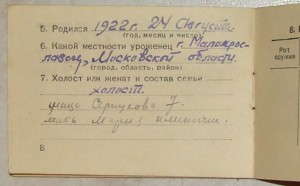 5. Родился 1922г. 24 Августа
(год, месяц и число)
6. Какой местности уроженец г. Малояро-
славец, Московской области.
(город, область, район)
7. Холост или женат и состав семьи
холост.
улица Серпухова 7.
мать Мария
8
8.
Род
оружия